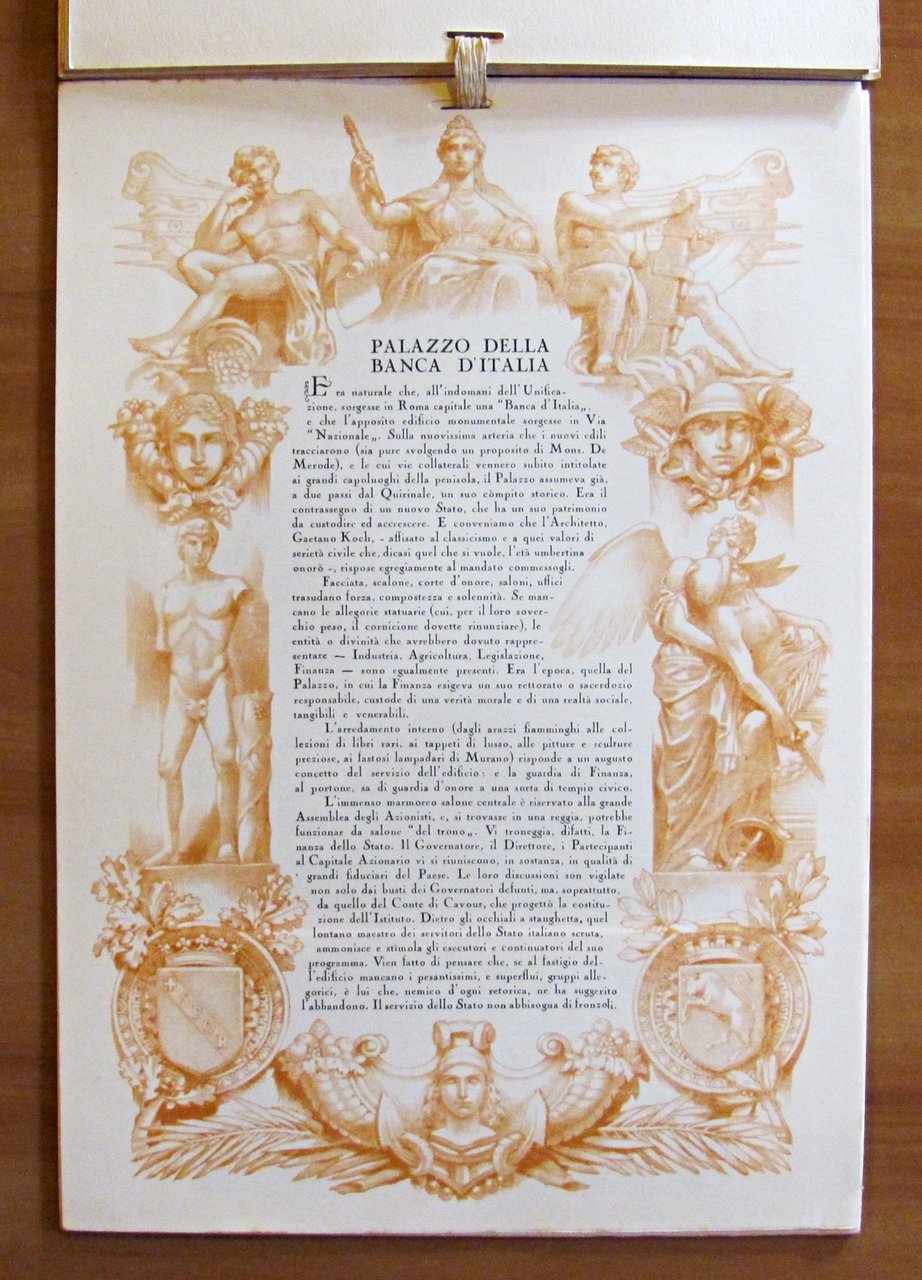 PALAZZO DELLA
BANCA D'ITALIA
Era naturale che, all'indomani dell'Unifica-
zione, sorgesse in Roma capitale una "Banca d'Italia„,
e che l'apposito edificio monumentale sorgesse in Via
"Nazionale„. Sulla nuovissima arteria che i nuovi edili
tracciarono (sia pure svolgendo un proposito di Mons. De
Merode), e le cui vie collaterali vennero subito intitolate
ai grandi capoluoghi della penisola, il Palazzo assumeva già,
a due passi dal Quirinale, un suo còmpito storico. Era il
contrassegno di un nuovo Stato, che ha un suo patrimonio
da custodire ed accrescere. E conveniamo che l'Architetto,
Gaetano Koch, - affisato al classicismo e a quei valori di
serietà civile che, dicasi quel che si vuole, l'età umbertina
onorò -, rispose egregiamente al mandato commessogli.
Facciata, scalone, corte d'onore, saloni, uffici
trasudano forza, compostezza e solennità. Se man-
cano le allegorie statuarie (cui, per il loro sover-
chio peso, il cornicione dovette rinunziare), le
entità o divinità che avrebbero dovuto rappre-
sentare — Industria, Agricoltura, Legislazione,
Finanza — sono egualmente presenti. Era l'epoca, quella del
Palazzo, in cui la Finanza esigeva un suo rettorato o sacerdozio
responsabile, custode di una verità morale e di una realtà sociale,
tangibili e venerabili.
L'arredamento interno (dagli arazzi fiamminghi alle col-
lezioni di libri rari, ai tappeti di lusso, alle pitture e sculture
preziose, ai fastosi lampadari di Murano) risponde a un augusto
concetto del servizio dell'edificio: e la guardia di Finanza,
al portone, sa di guardia d'onore a una sorta di tempio civico.
L'immenso marmoreo salone centrale è riservato alla grande
Assemblea degli Azionisti, e, si trovasse in una reggia, potrebbe
funzionar da salone "del trono„. Vi troneggia, difatti, la Fi-
nanza dello Stato. Il Governatore, il Direttore, i Partecipanti
al Capitale Azionario vi si riuniscono, in sostanza, in qualità di
grandi fiduciari del Paese. Le loro discussioni son vigilate
non solo dai busti dei Governatori defunti, ma, soprattutto,
da quello del Conte di Cavour, che progettò la costitu-
zione dell'Istituto. Dietro gli occhiali a stanghetta, quel
lontano maestro dei servitori dello Stato italiano scruta,
ammonisce e stimola gli esecutori e continuatori del suo
programma. Vien fatto di pensare che, se al fastigio del-
l'edificio mancano i pesantissimi, e superflui, gruppi alle-
gorici, è lui che, nemico d'ogni retorica, ne ha suggerito
l'abbandono. Il servizio dello Stato non abbisogna di fronzoli.